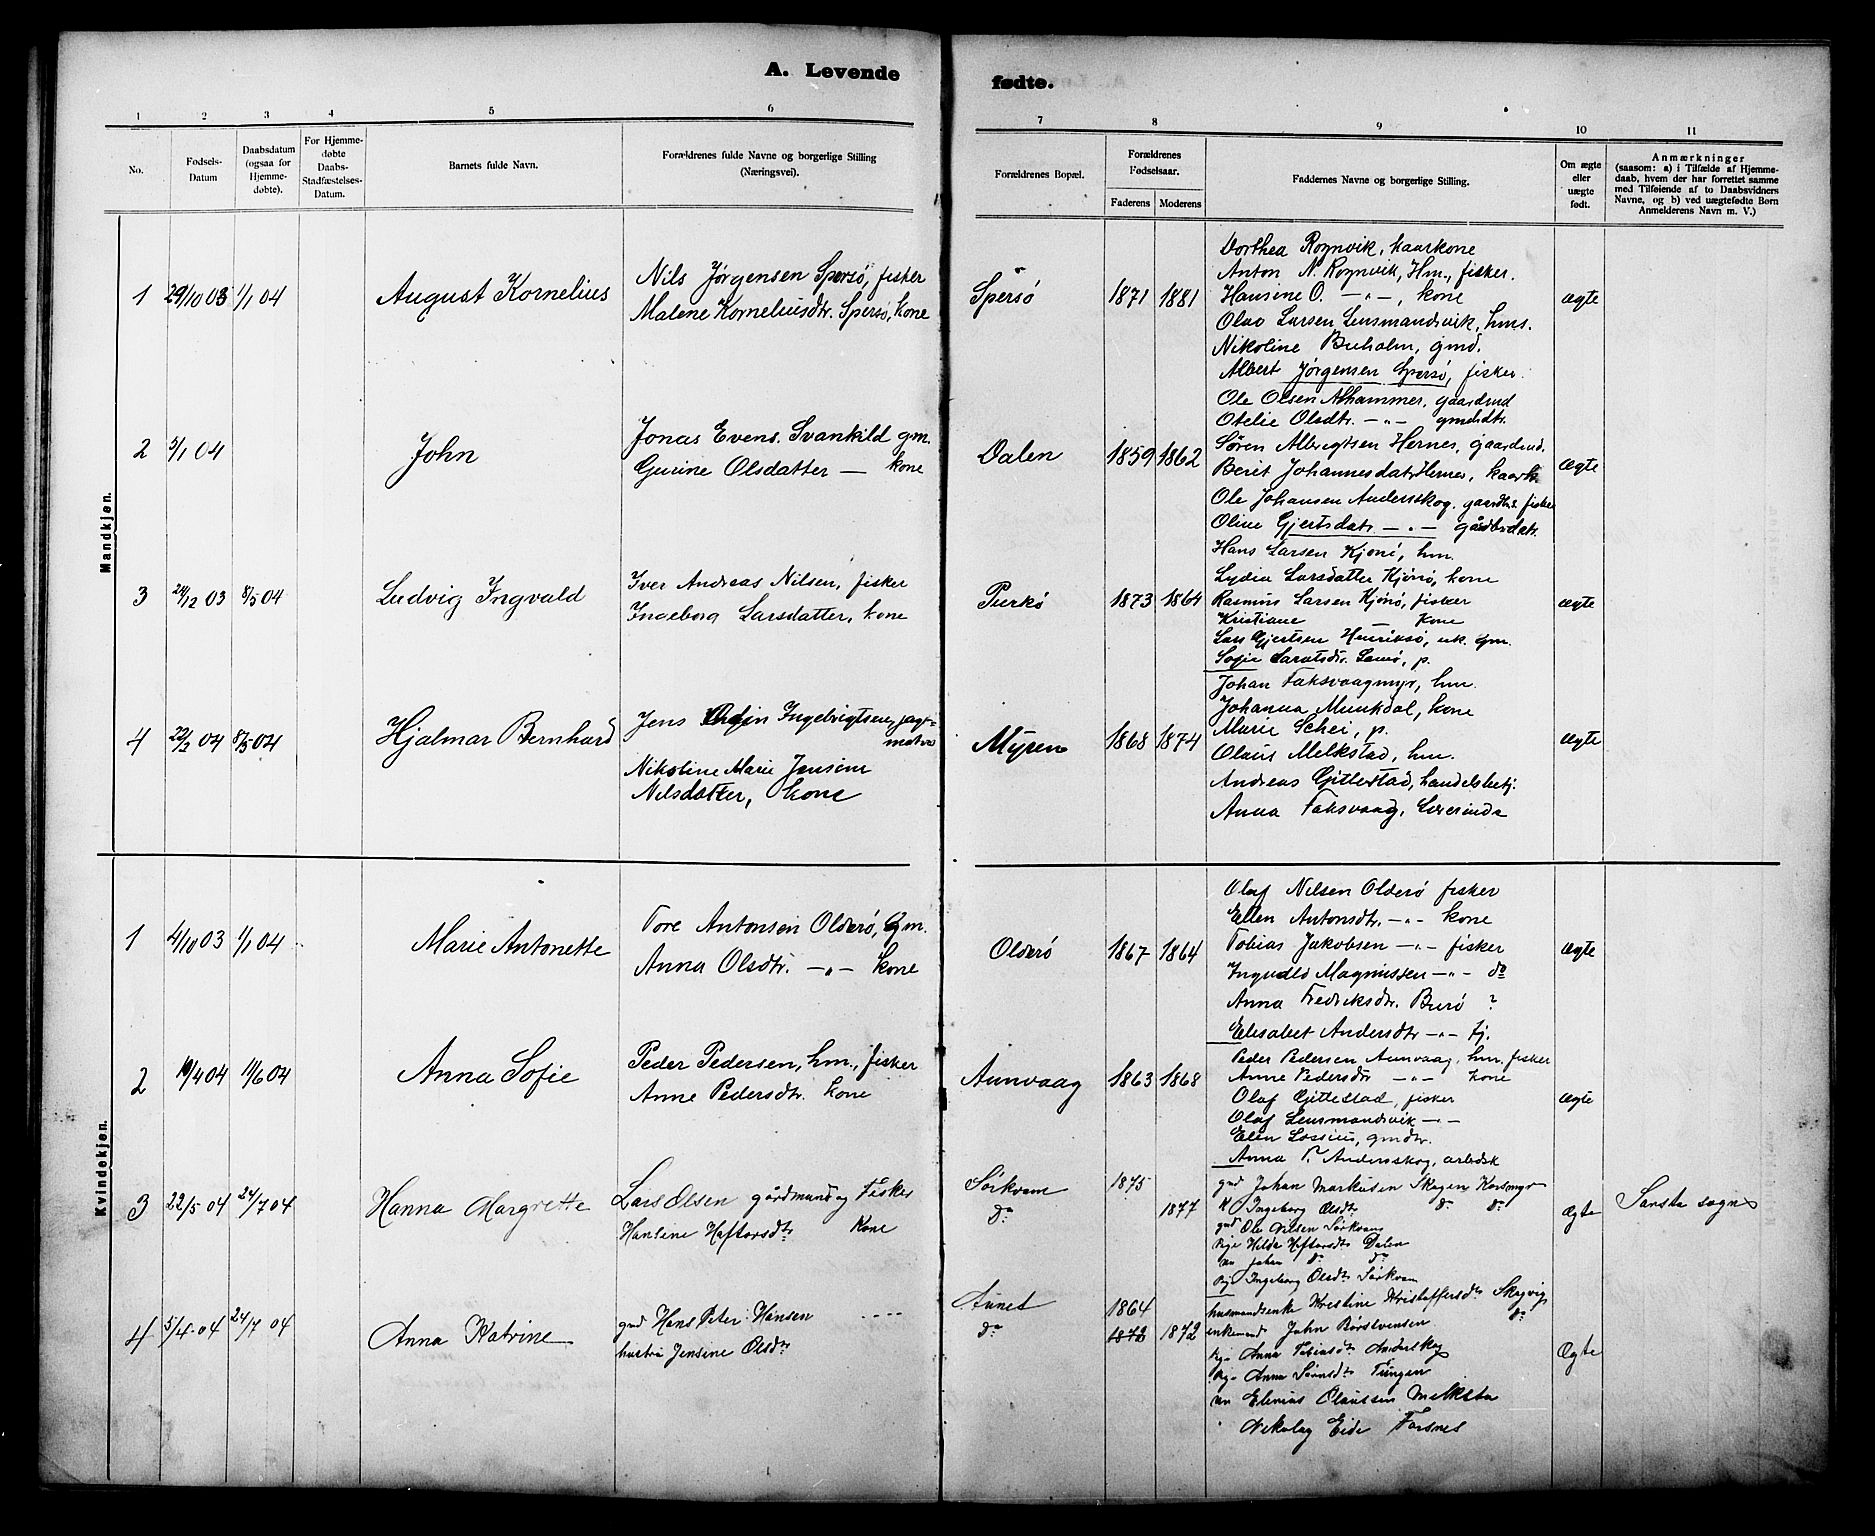 A. Levende
fødte.
1 2 3 4 5 6
7 8 9 10 11
No.
Fødsels-
Datum
Daabsdatum
(ogsaa for
Hjemme-
døbte).
For Hjemme-
døbte
Daabs-
Stadfæstelses-
Datum.
Barnets fulde Navn.
Forældrenes fulde Navne og borgerlige Stilling
(Næringsvei).
Forældrenes Bopæl.
Forældrenes
Fødselsaar.
Faderens Moderens
Faddernes Navne og borgerlige Stilling.
Om ægte
eller
uægte
født.
Anmærkninger
(saasom: a) i Tilfælde af Hjemme-
daab, hvem der har forrettet samme
med Tilføiende af to Daabsvidners
Navne, og b) ved uægtefødte Børn
Anmelderens Navn m. V.)
Mandkjøn.
1 29/10 03 1/1 04
August Kornelius
Nils Jørgensen Spersø, fisker
Malene Korneliusdtr. Spersø, kone
Spersø
1871 1881
Dorthea Rognvik, kaarkone
Anton N. Rognvik, Hm., fisker.
Hansine O. —„—, kone
Olav Larsen Lensmandsvik, hms.
Nikoline Buholm, gmd.
Albert Jørgensen Spersø, fisker.
ægte
2 5/1 04
John
Jonas Evens. Svankild gm.
Gurine Olsdatter — kone
Dalen
1859 1862
Ole Olsen Ashammer, gaardmd
Otelie Olsdtr. —„— gmdsdtr.
Søren Albrigtsen Hernes, gaardmd.
Berit Johannesdatr Hernes, kaark.
Ole Johansen Anderskog. fisker
Oline Gjertsdatr. —„—
ægte
3 24/12 03 8/5 04
Ludvig Ingvald
Iver Andreas Nilsen, fisker
Ingeborg Larsdatter, kone
Purkø
1873 1864
Hans Larsen Kjønø, hm.
Lydia Larsdatter Kjønø, kone
Rasmus Larsen Kjønø, fisker
Kristiane — kone
Lars Gjertsen Henriksø, uk. gm.
Sofie
ægte
4 22/2 04 8/5 04
Hjalmar Bernhard
Jens Odin Ingebrigtsen, jagt-
matros
Nikoline Marie Jensine
Nilsdatter, kone
Myren
1868 1874
Johan Faksvaagmyr, hm.
Johanna Munkdal, kone
Marie Schei, p.
Olaus Melkstad, hm.
Andreas Gittestad, handelsbetj.
Anna Faksvaag, Lærerinde
ægte
Kvindekjøn.
1 4/10 03 1/1 04
Marie Antonette
Tore Antonsen Olderø, Gm.
Anna Olsdtr. —„— kone
Olderø
1867 1864
Olaf Nilsen Olderø fisker
Ellen Antonsdtr. —„— kone
Tobias Jakobsen —„— fisker
Magnussen —„— do
Anna Fredriksdtr. Burø ?
Elisabet Andersdtr —„— tj.
ægte
2 10/4 04 19/6 04
Anna Sofie
Peder Pedersen, hm., fisker
Anne Pedersdtr. kone
Aunvaag
1863 1868
Peder Pedersen Aunvaag, hm. fisker
Anne Pedersdtr —„— kone
Olaf Gittestad, fisker
Olaf Lensmandsvik —„—
Elen Lossius, gmdtr.
Anna T. Anderskog, arbeidsk
ægte
3 22/5 04 24/7 04
Hanna Margrette
Lars Olsen gårdmand og Fisker
Hansine Haftorsdtr Kone
Sørkvam
do
1875
1877
gmd Johan Markusen Skagen Korsmyr
K Ingeborg Olsdtr do do
gmd Ole Nilsen Sørkvam
Pige Hilda Haftorsdtr Dalen
un Johan do do
Pige Ingeborg Olsdtr Sørkvam
Ægte
Sansta sogn
4 5/4 04 24/7 04
Anna Katrine
gmd Hans Peter Hansen
hustru Jensine Olsdtr
Aunet
do
1864
1872 1872
husmandsenke Kristine Kristoffersdtr Skagvig
enkemand John Børstvensen do
Pige Anna Tobiasdtr Anderskog
Pige Anna Sørnsdtr Tungen
un Elenius Olaussen Melksta
" Nikolay Eide Forsnes
Ægte